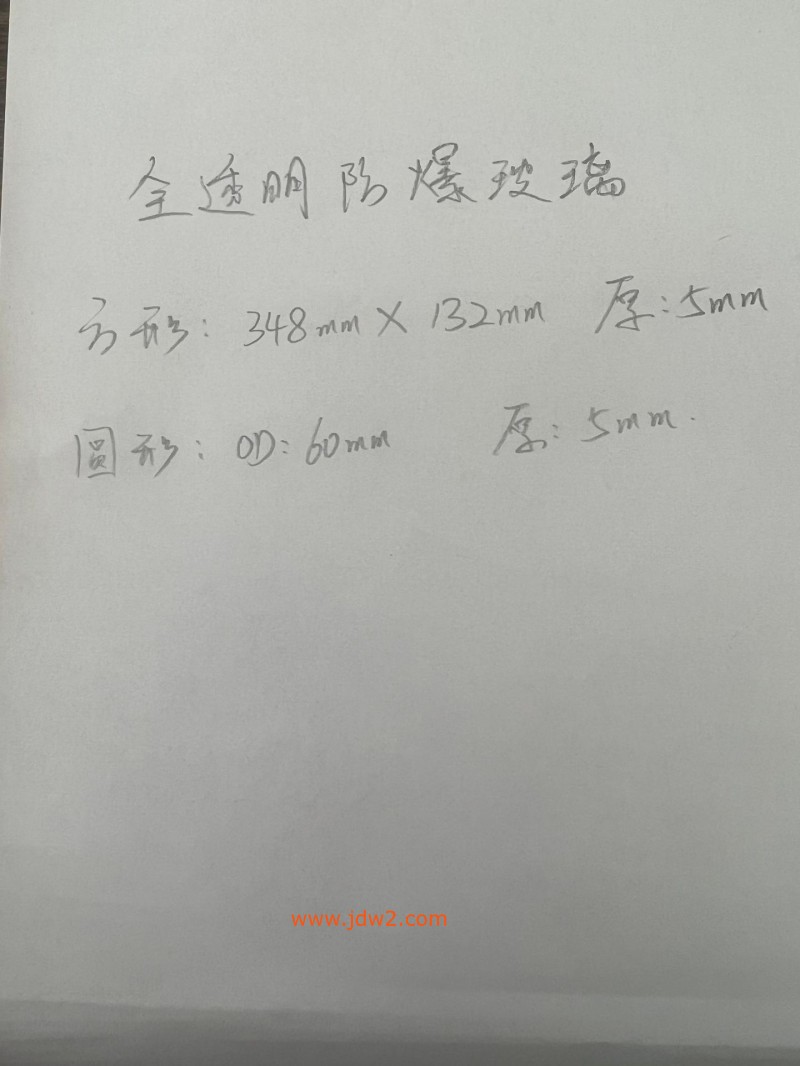 全透明防爆玻璃
方形：348mm × 132mm 厚：5mm
圆形：OD：60mm 厚：5mm.
www.jdw2.com